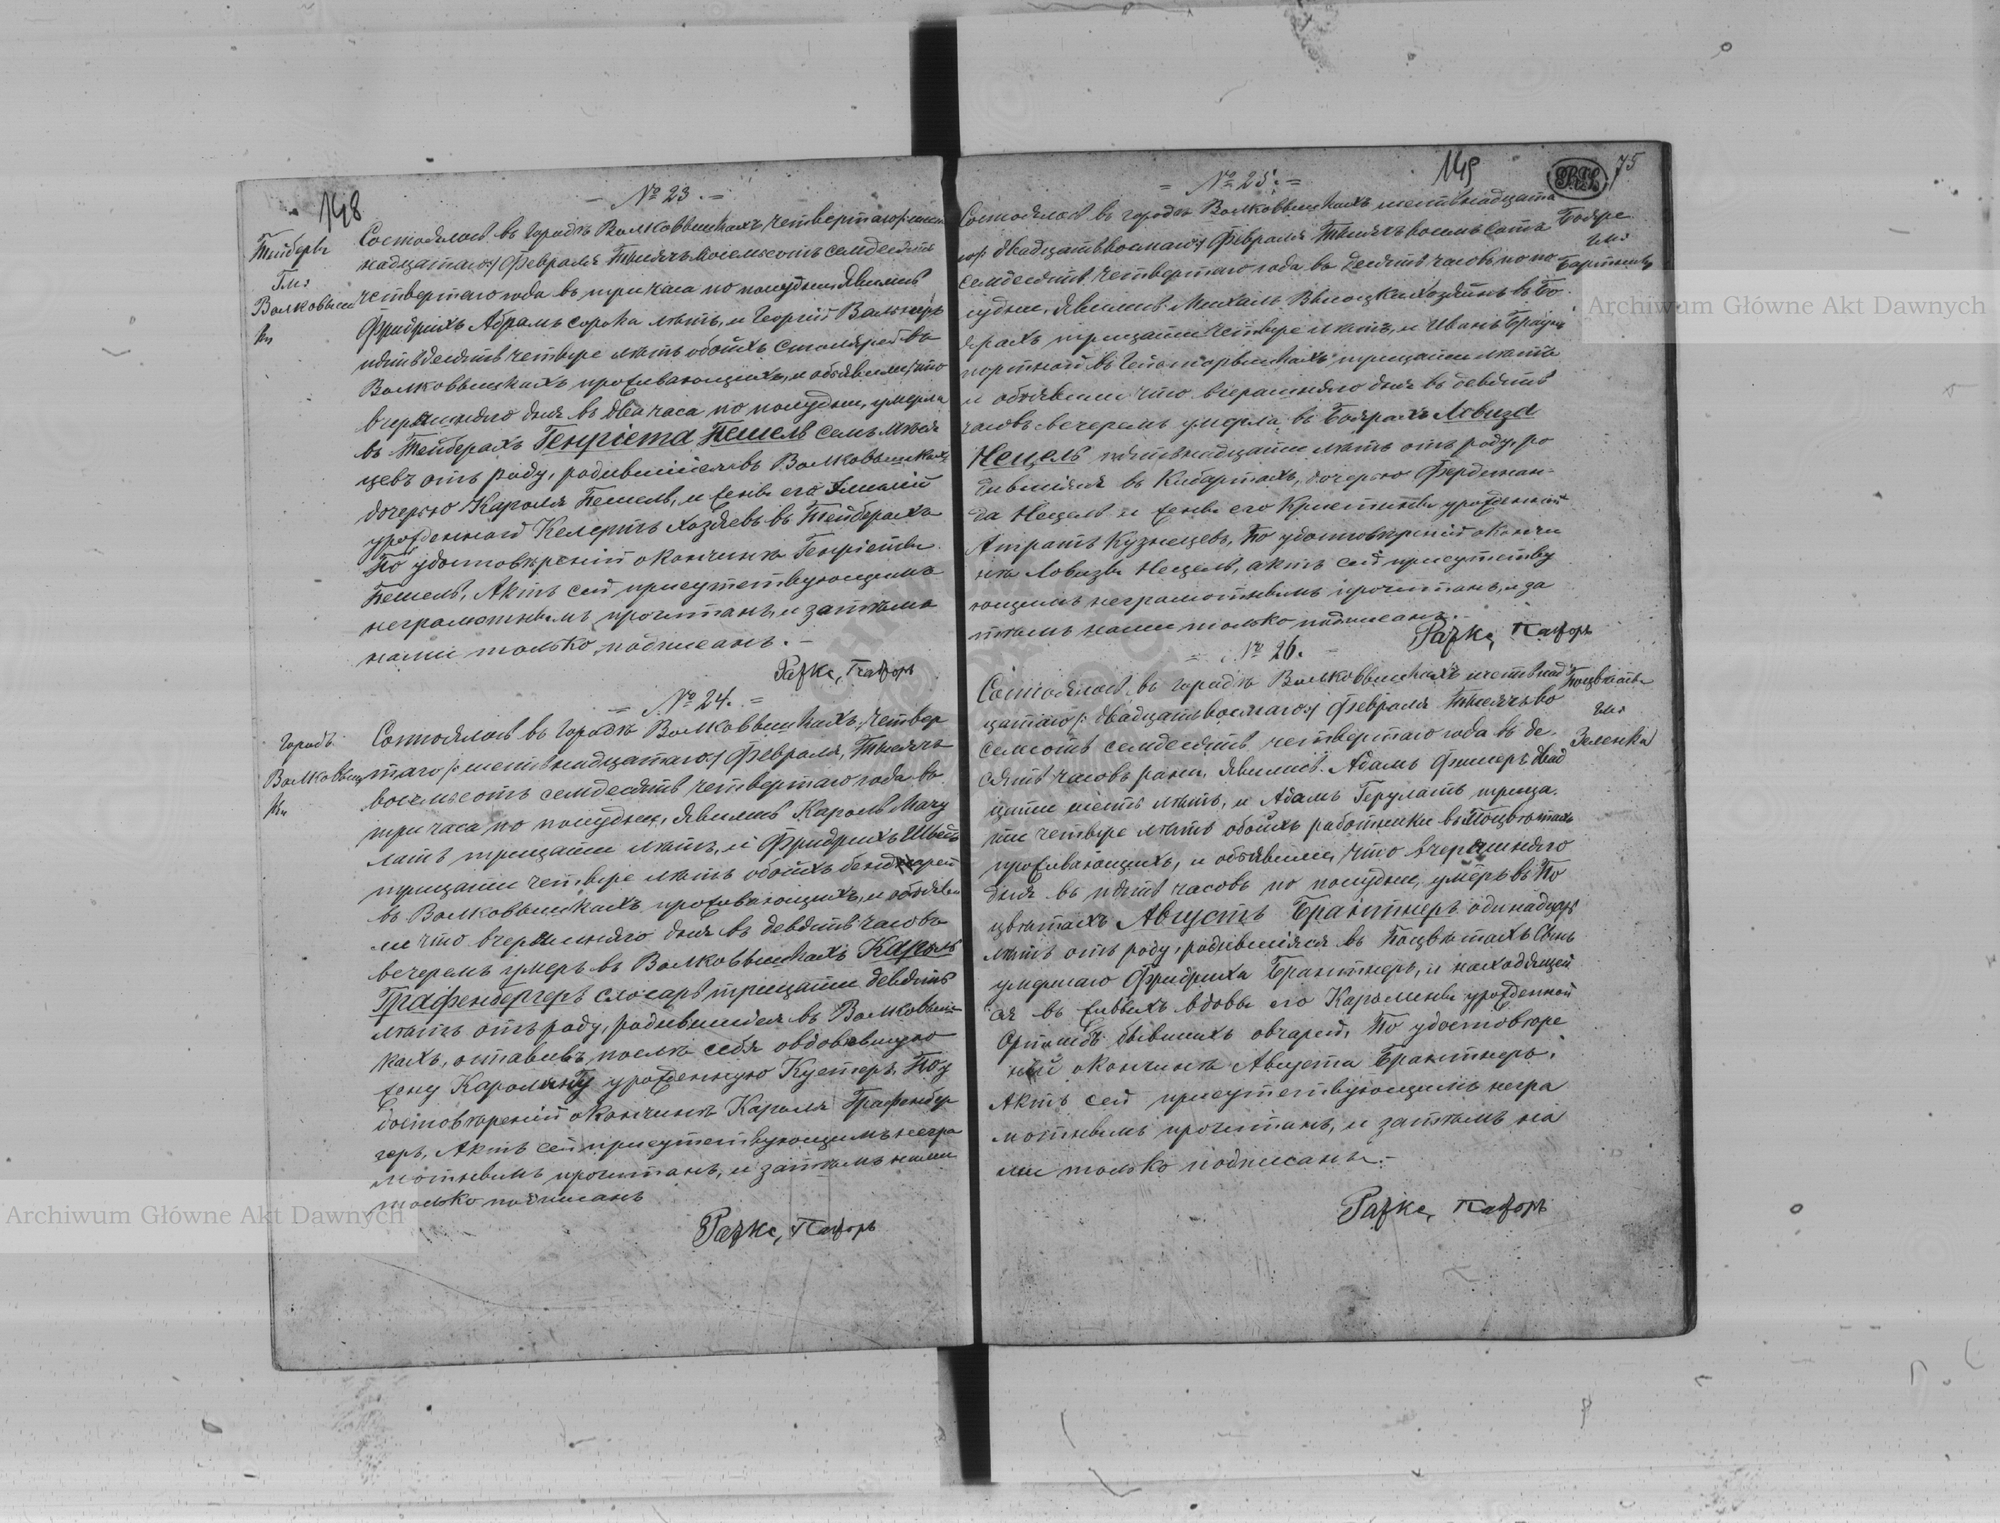 148
— № 23. —
Тейберы
Гмз
Волковыш
ки
Состоялось въ городѣ Волковышкахъ, четвертаго/:шест
надцатаго:/ Февраля тысяча восемьсотъ семдесятъ
четвертаго года въ три часа по полудни, Явились
Фридрихъ Абрамъ сорока лѣтъ, и Георгій Вальнеръ
пятьдесятъ четыре лѣтъ обоихъ столярей въ
Волковышкахъ проживающихъ, и объявили, что
вчерашняго дня въ два часа по полудни, умерла
въ Тейберахъ Генріета Пешель семь мѣся
цевъ отъ роду, родившаяся въ Волковышках,
дочерью Кароля Пешель, и жены его Эмилій
урожденной Келертъ хозяевъ въ Тейберахъ
По удостовѣреній о кончинѣ Генріеты
Пешель, Актъ сей присутствующимъ
неграмотнымъ прочитанъ, и затѣмъ
нами только, подписанъ. —
Рафке, Пасторъ
— № 24. =
Городъ
Волковыш
ки
Состоялось въ городѣ Волковышкахъ, четвер
таго /:шестнадцатаго:/ Февраля, Тысяча
восемьсотъ семдесятъ четвертаго года въ
три часа по полудни, Явились Кароль Мачу
латъ тридцати лѣтъ, и Фридрихъ Швей
тридцати четыре лѣтъ обоихъ бендарей
въ Волковышкахъ проживающихъ, и объяви
ли что вчерашняго дня въ девять часовъ
вечеромъ умеръ въ Волковышкахъ Кароль
Графенбергеръ слосарь тридцати девять
лѣтъ отъ роду, родившійся въ Волковыш
кахъ, оставивъ послѣ себя овдовѣвшую
жену Каролину урожденную Кустеръ, По у
достовѣреній о кончинѣ Кароля Графенбер
геръ, Актъ сей присутствующимъ негра
мотнымъ прочитанъ, и затѣмъ нами
только подписанъ
Рафке, Пасторъ
149
75
= № 25. =
Бояре
гмз
Бартники
Состоялось въ городѣ Волковышкахъ шестнадцата
го/: двадцать восмаго:/ Февраля Тысяча восемьсотъ
семдесятъ четвертаго года въ десять часовъ по по
лудни, Явились Михаль Вылоцки хозяинъ въ Бо
ярахъ тридцати четыре лѣтъ, и Иванъ Браунъ
портной въ тридцати лѣтъ
и объявили что вчерашняго дня въ девять
часовъ вечеромъ умерла въ Боярахъ Ловиза
Нецель пятьнадцати лѣтъ отъ роду, ро
дившаяся въ Кибартахъ, дочерью Фердинан-
да Нецель и жены его Кристины урожденной
Атратъ Кузнецевъ, По удостовѣреній о кончи
нѣ Ловизы Нецель, актъ сей присутству
ющимъ неграмотнымъ прочитанъ, и за
тѣмъ нами только подписанъ. —
Рафке, Пасторъ
— № 26. —
Поцвѣты
гмз
Зеленка
Состоялось въ городѣ Волковышкахъ шестнад
цатаго/: двадцать восмаго:/ Февраля Тысяча во
семсотъ семдесятъ четвертаго года въ де.
сять часовъ рани, Явились. Адамъ Фишеръ двад
цати шесть лѣтъ, и Адамъ Герулатъ тридца.
ти четыре лѣтъ обоихъ работники въ Поцвѣтахъ
проживающихъ, и объявили, что вчерашняго
дня въ пять часовъ по полудни, умеръ въ По
цвѣтахъ Августъ Брантнеръ одинадцать
лѣтъ отъ роду, родившійся въ Поцвѣтахъ Сынъ
умершаго Фридриха Брантнеръ, и находящей
ся въ живыхъ вдовы его Каролины урожденной
бывшихъ овчарей, По удостовѣре
ній о кончинѣ Августа Брантнеръ,
Актъ сей присутствующимъ негра
мотнымъ прочитанъ, и затѣмъ на
ми только подписанъ. —
Рафке, Пасторъ
Archiwum Główne Akt Dawnych
Archiwum Główne Akt Dawnych